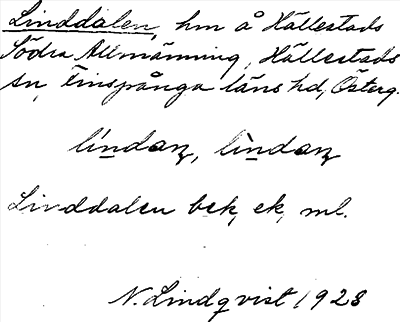 Linddalen, hm å Hällestads
Södra Allmänning, Hällestads
sn, Finspånga läns hd, Österg.
lindaɳ, lìndaɳ
Linddalen bek, ek, ml.
N. Lindqvist 1928